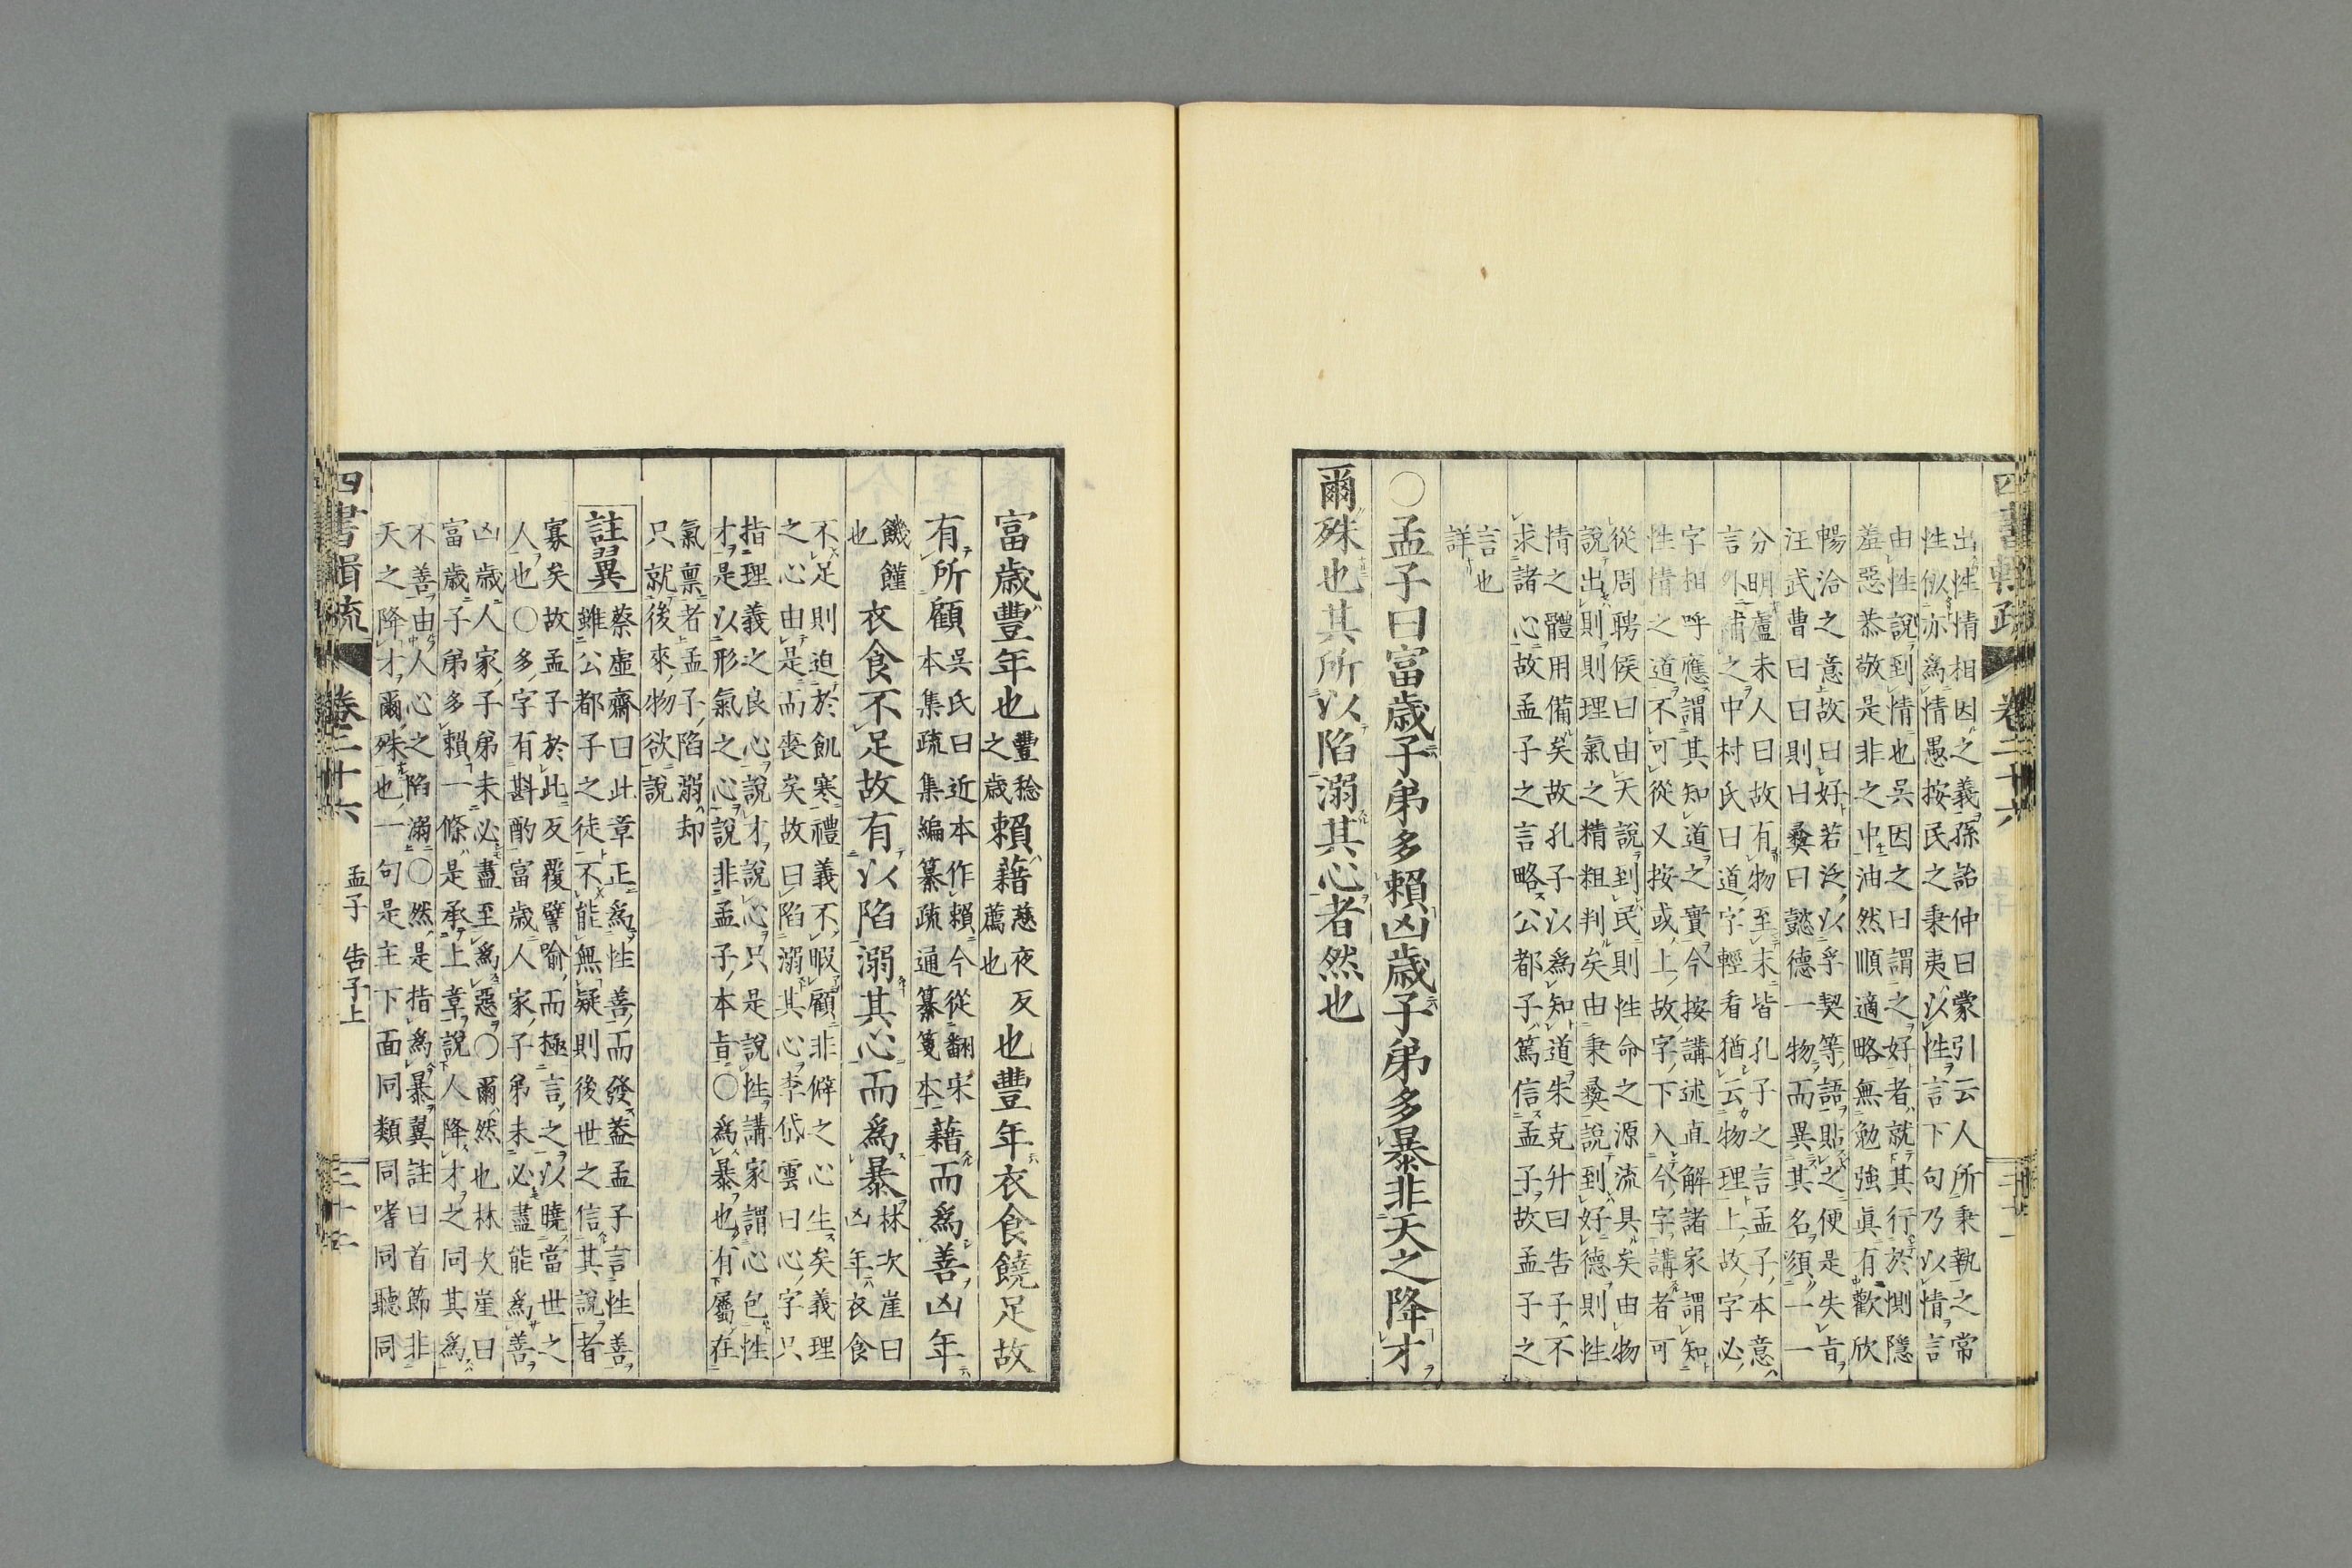 四書輯疏 卷二十六
出性情相因之義孫詒仲曰蒙引云人所秉執之常
性似亦爲情愚按民之秉夷以性言下句乃以情言
由性說到情也吳因之曰謂之好者就其行於惻隱
羞惡恭敬是非之中油然順適略無勉強眞有歡欣
暢洽之意故曰好若泛以孚契等語貼之便是失旨
汪武曹曰曰則曰彝曰懿德一物而異其名須一一
分明盧未人曰故有物至末皆孔子之言孟子本意
言外補之中村氏曰道字輕看猶云物理上故字必
字相呼應謂其知道之實今按講述直解諸家謂知
性情之道不可從又按或上故字下入今字講者可
從周聘侯曰由天說到民則性命之源流具矣由物
說出則則理氣之精粗判矣由秉彝說到好德則性
情之體用備矣故孔子以爲知道朱克升曰告子不
求諸心故孟子之言略公都子篤信孟子故孟子之
言也
詳
○孟子曰富歲子弟多賴凶歲子弟多暴非天之降才
爾殊也其所以陷溺其心者然也
富歲豐年也豐稔之歲賴藉慈夜反薦也也豐年衣食饒足故
有所顧吳氏曰近本作賴今從翻宋本集疏集編纂疏通纂箋本藉而爲善凶年
饑饉也衣食不足故有以陷溺其心而爲暴林次崖曰凶年衣食
不足則迫於飢寒禮義不暇顧非僻之心生矣義理
之心由是而喪矣故曰陷溺其心李岱雲曰心字只
指理義之良心說才說心只是說性講家謂心包性
才是以形氣之心說非孟子本旨○爲暴也有屬在
氣稟者孟子陷溺却
只就後來物欲說
註翼 蔡虛齋曰此章正爲性善而發蓋孟子言性善
雖公都子之徒不能無疑則後世之信其說者
寡矣故孟子於此反覆譬喻而極言之以曉當世之
人也○多字有斟酌富歲人家子弟未必盡能爲善
凶歲人家子弟未必盡至爲惡○爾然也林次崖曰
富歲子弟多賴一條是承上章說人降才之同其爲
不善由人心之陷溺○然是指爲暴翼註曰首節非
天之降才爾殊也一句是主下面同類同嗜同聽同
四書輯疏 卷二十六 孟子 告子上 三十二